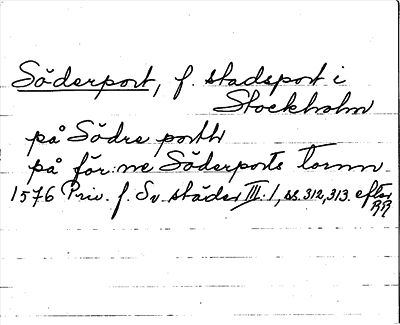 Söderport, f. stadsport i
Stockholm
på Södre portt
på för:ne Söderports tornn
1576 Priv. f. Sv. städer III:1, ss. 312, 313. efter
RR